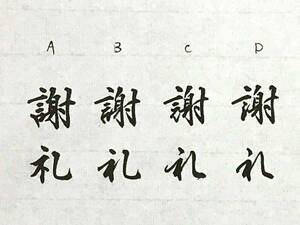 A B C D
謝 謝 謝 謝
礼 礼 礼 礼